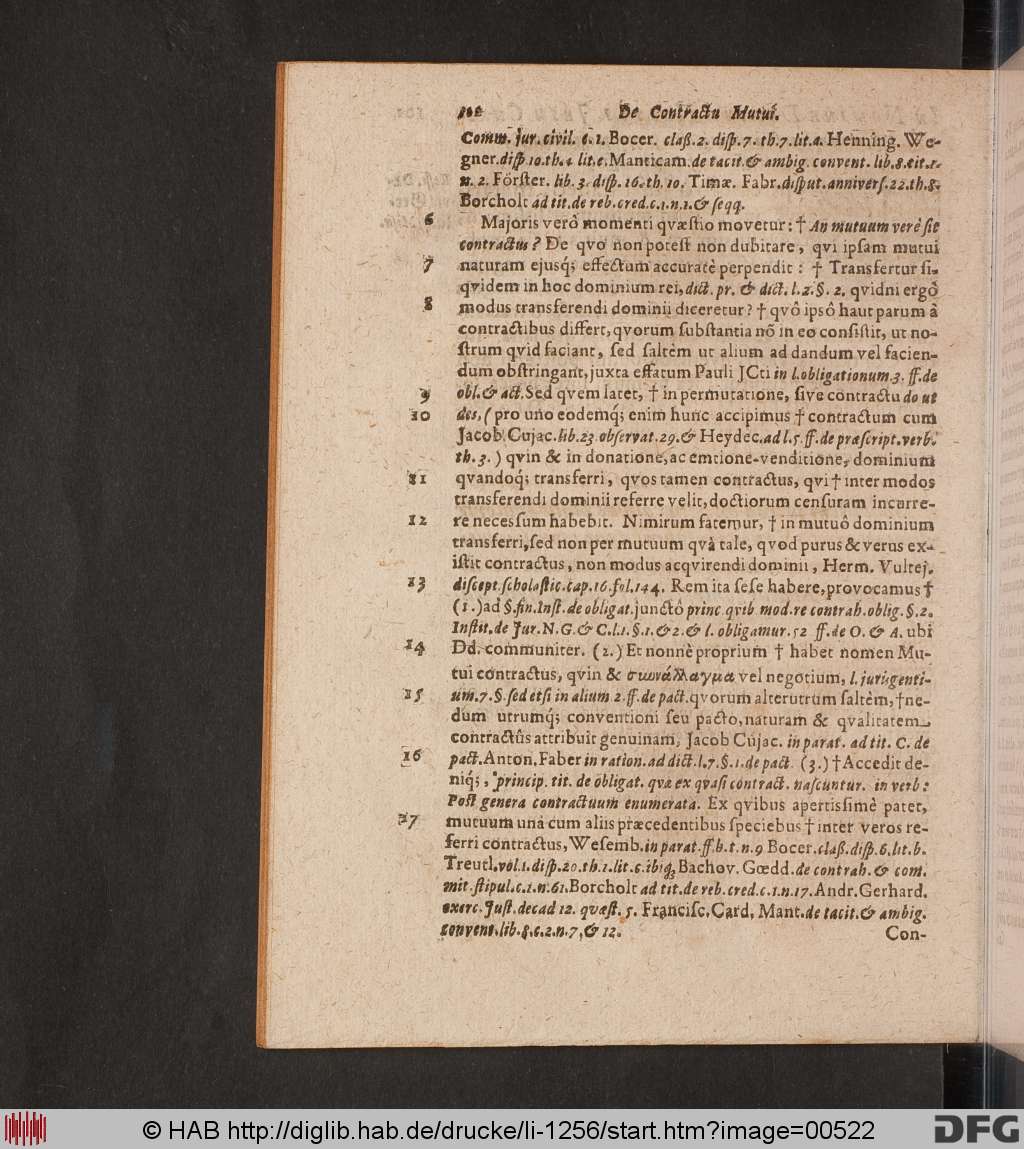 De Contractu Mutui.
Comm. jur. civil. c. 1. Bocer. claß. 2. disp. 7. th. 7. lit. a. Henning. We-
gner. disp. 10. th. 4. lit. c. Manticam. de tacit. & ambig. convent. lib. 8. tit. 1.
n. 2. Förster. lib. 3. disp. 16. th. 10. Timæ. Fabr. disput. annivers. 22. th. 8.
Borcholt ad tit. de reb. cred. c. 1. n. 1. & seqq.
6 Majoris verò momenti qvæstio movetur: † An mutuum verè sit
contractus? De qvo non potest non dubitare, qvi ipsam mutui
7 naturam ejusq; effectum accuratè perpendit: † Transfertur si-
qvidem in hoc dominium rei, dict. pr. & dict. l. 2. §. 2. qvidni ergò
8 modus transferendi dominii diceretur? † qvô ipsô haut parum à
contractibus differt, qvorum substantia nõ in eo consistit, ut no-
strum qvid faciant, sed saltèm ut alium ad dandum vel facien-
dum obstringant, juxta effatum Pauli JCti in l. obligationum. 3. ff. de
9 obl. & act. Sed qvem latet, † in permutatione, sive contractu do ut
10 des, (pro uno eodemq; enim hunc accipimus † contractum cum
Jacob. Cujac. lib. 23. observat. 29. & Heydec. ad l. 5. ff. de præscript. verb.
th. 3.) qvin & in donatione, ac emtione-venditione, dominium
11 qvandoq; transferri, qvos tamen contractus, qvi † inter modos
transferendi dominii referre velit, doctiorum censuram incurre-
12 re necessum habebit. Nimirum fatemur, † in mutuô dominium
transferri, sed non per mutuum qvà tale, qvod purus & verus ex-
istit contractus, non modus acqvirendi dominii, Herm. Vultej.
13 discept. scholastic. cap. 16. fol. 144. Rem ita sese habere, provocamus †
(1.) ad §. fin. Inst. de obligat. junctô princ. qvib. mod. re contrah. oblig. §. 2.
Instit. de Jur. N. G. & C. l. 1. §. 1. & 2. & l. obligamur. 52 ff. de O. & A. ubi
14 Dd. communiter. (2.) Et nonnè proprium † habet nomen Mu-
tui contractus, qvin & συνάλλαγμα vel negotium, l. jurisgenti-
15 um. 7. §. sed etsi in alium 2. ff. de pact. qvorum alterutrum saltèm, † ne-
dum utrumq; conventioni seu pacto, naturam & qvalitatem
contractûs attribuit genuinam, Jacob Cujac. in parat. ad tit. C. de
16 pact. Anton. Faber in ration. ad dict. l. 7. §. 1. de pact. (3.) † Accedit de-
niq;, princip. tit. de obligat. qvæ ex qvasi contract. nascuntur. in verb:
Post genera contractuum enumerata. Ex qvibus apertissimè patet,
17 mutuum unà cum aliis præcedentibus speciebus † inter veros re-
ferri contractus, Wesemb. in parat. ff. h. t. n. 9 Bocer. claß. disp. 6. lit. b.
Treutl. vol. 1. disp. 20. th. 1. lit. c. ibiq; Bachov. Gœdd. de contrah. & com.
mit. stipul. c. 1. n. 61. Borcholt ad tit. de reb. cred. c. 1. n. 17. Andr. Gerhard.
exerc. Just. decad 12. qvæst. 5. Francisc. Card. Mant. de tacit. & ambig.
convent. lib. 8. c. 2. n. 7, & 12.
Con-
© HAB http://diglib.hab.de/drucke/li-1256/start.htm?image=00522
DFG